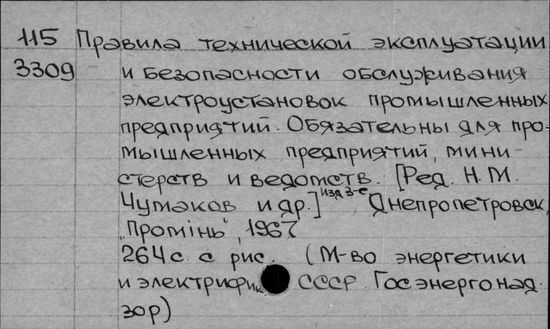 115 Правила технической эксплуатации
3309 и безопасности обслуживания
электроустановок промышленных
предприятий. Обязательны для про-
мышленных предприятий, мини-
стерств и ведомств. [Ред. Н.М.
Чумаков и др.] Изд 3-е Днепропетровск,
"Промінь", 1967
264 с. с рис. (М-во энергетики
и электрифик СССР. Госэнергонад
зор)